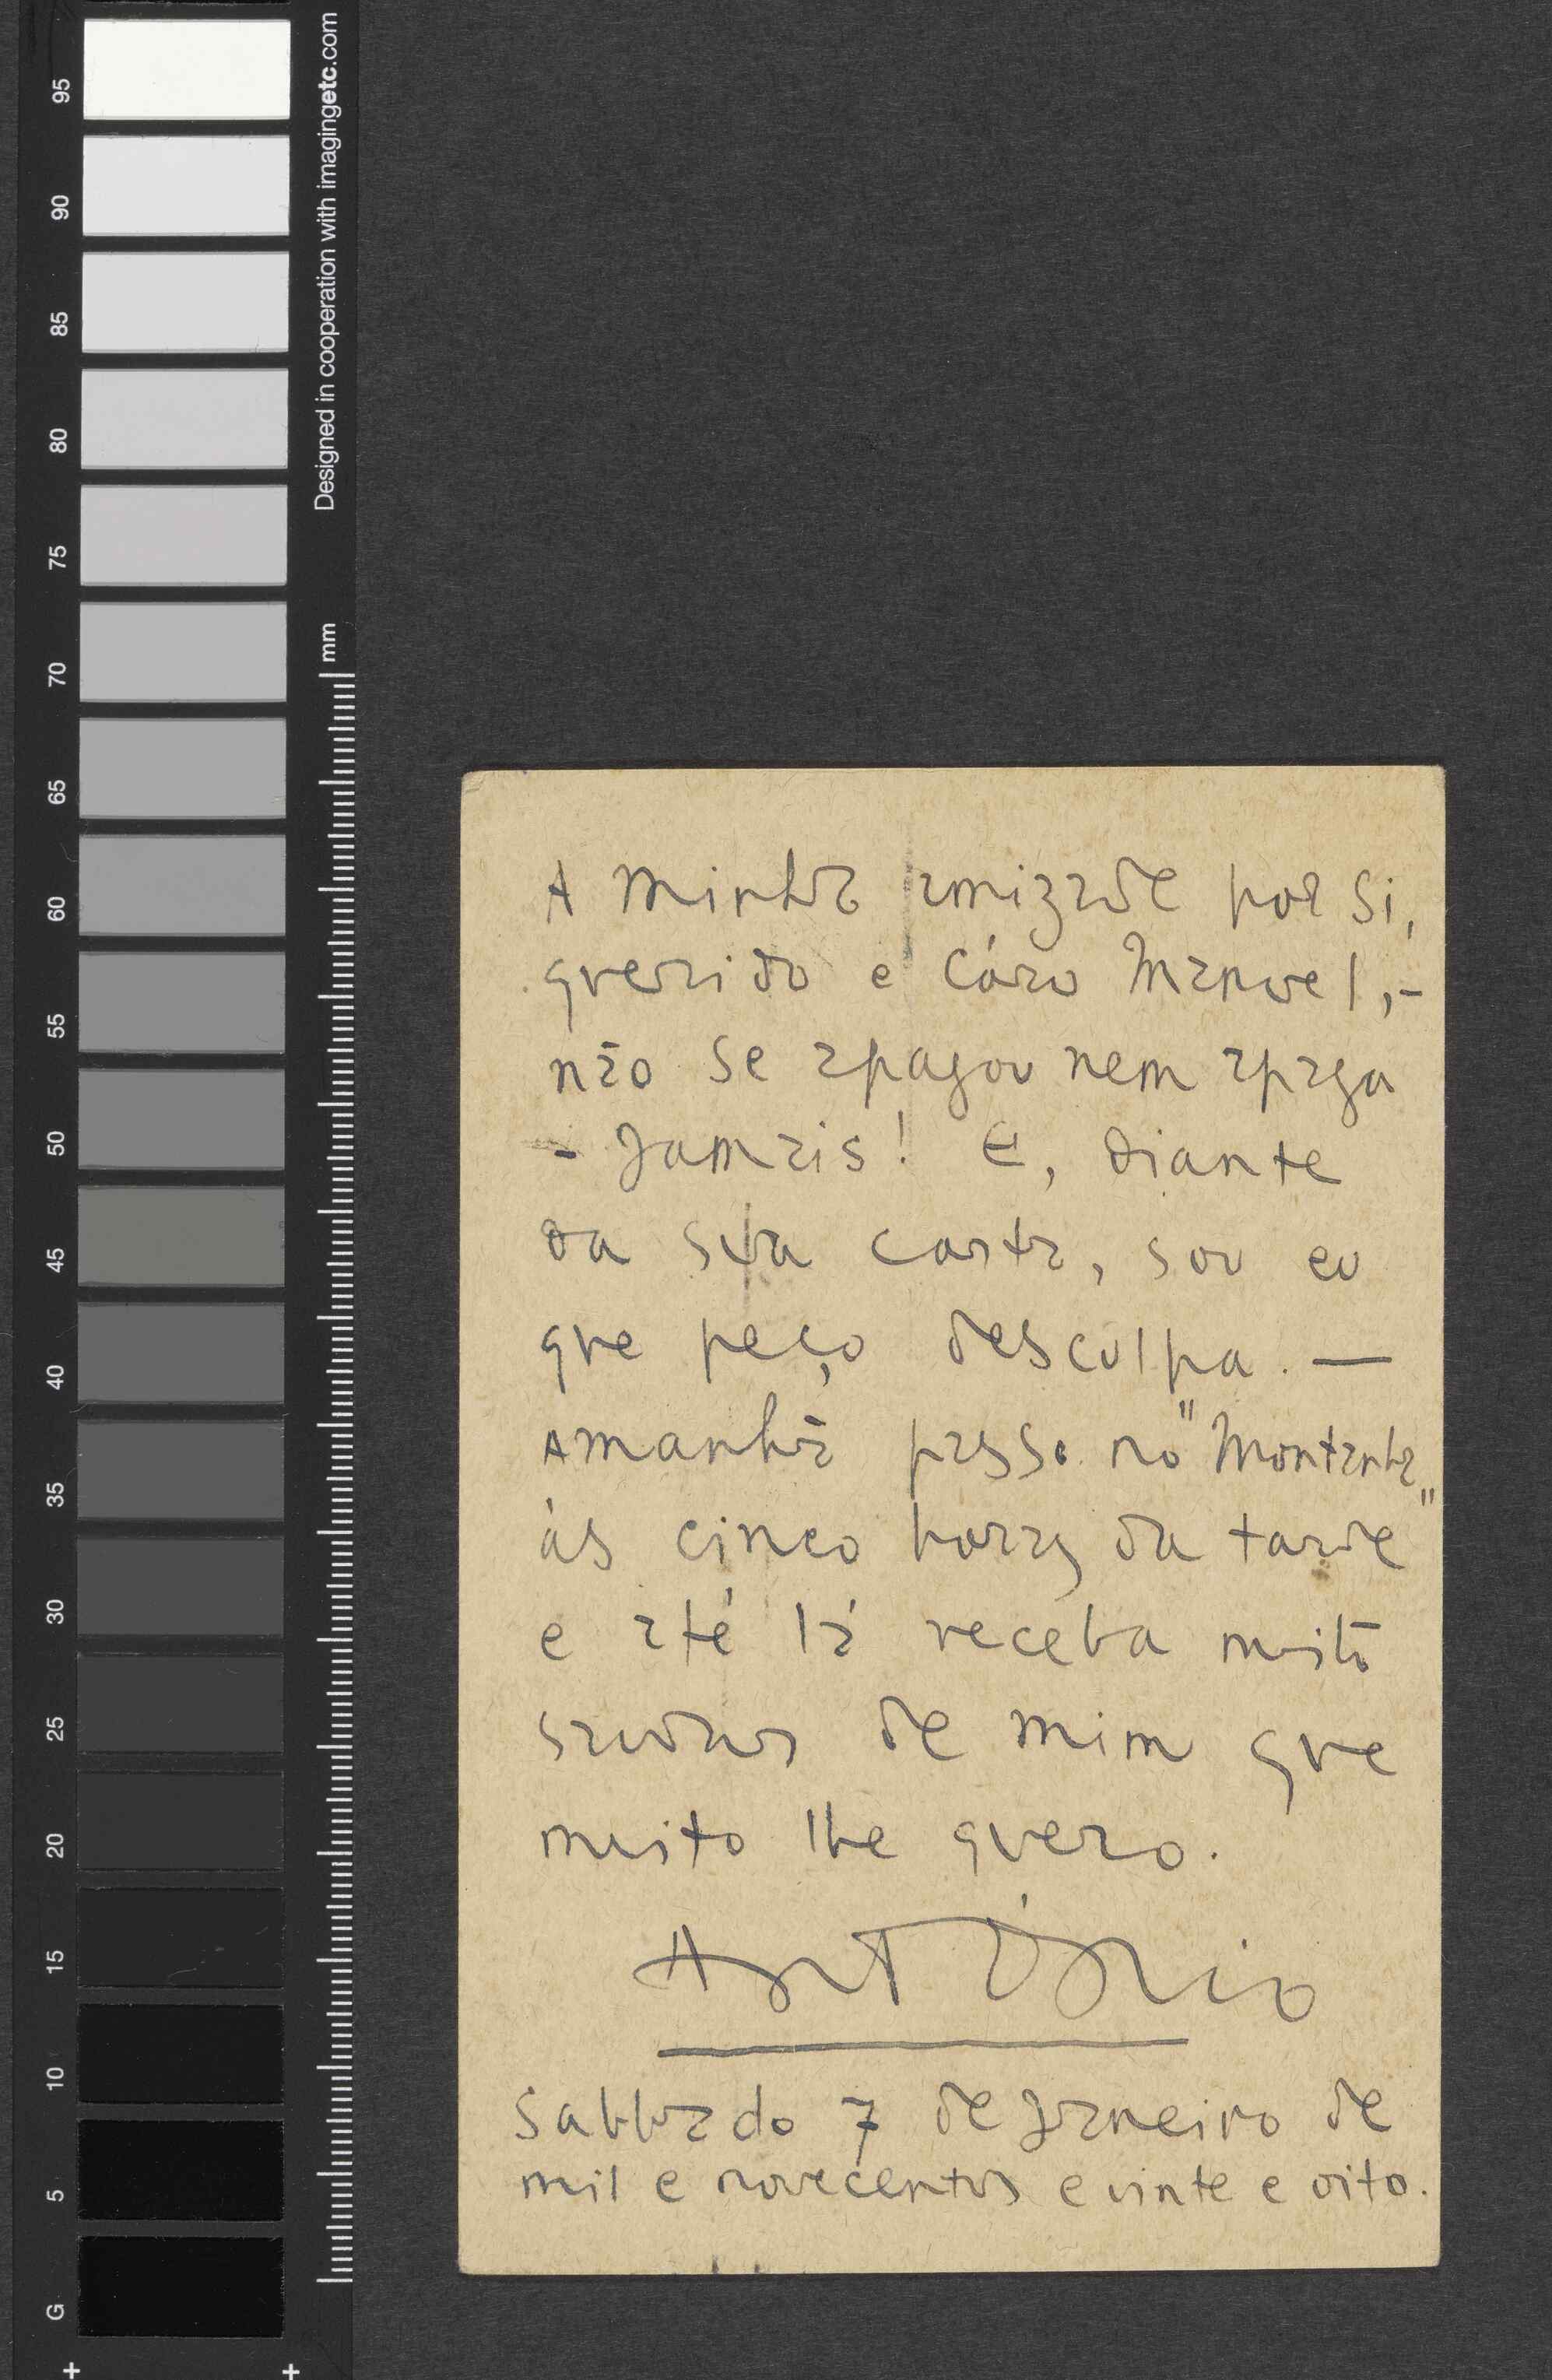 95
90
85
80
75
70
65
60
55
50
45
40
35
30
25
20
15
10
5
G
Designed in cooperation with imagingetc.com
mm
A minha amizade por si,
querido e cáro Manuel,-
não se apagou nem apaga
- Jamais! E, diante
da sua carta, sou eu
que peço desculpa. —
Amanhã passo no "Montanha"
ás cinco horas da tarde
e até lá receba muito
saudar de mim que
muito lhe quero.
António
Sabbado 7 de Janeiro de
mil e novecentos e vinte e oito.